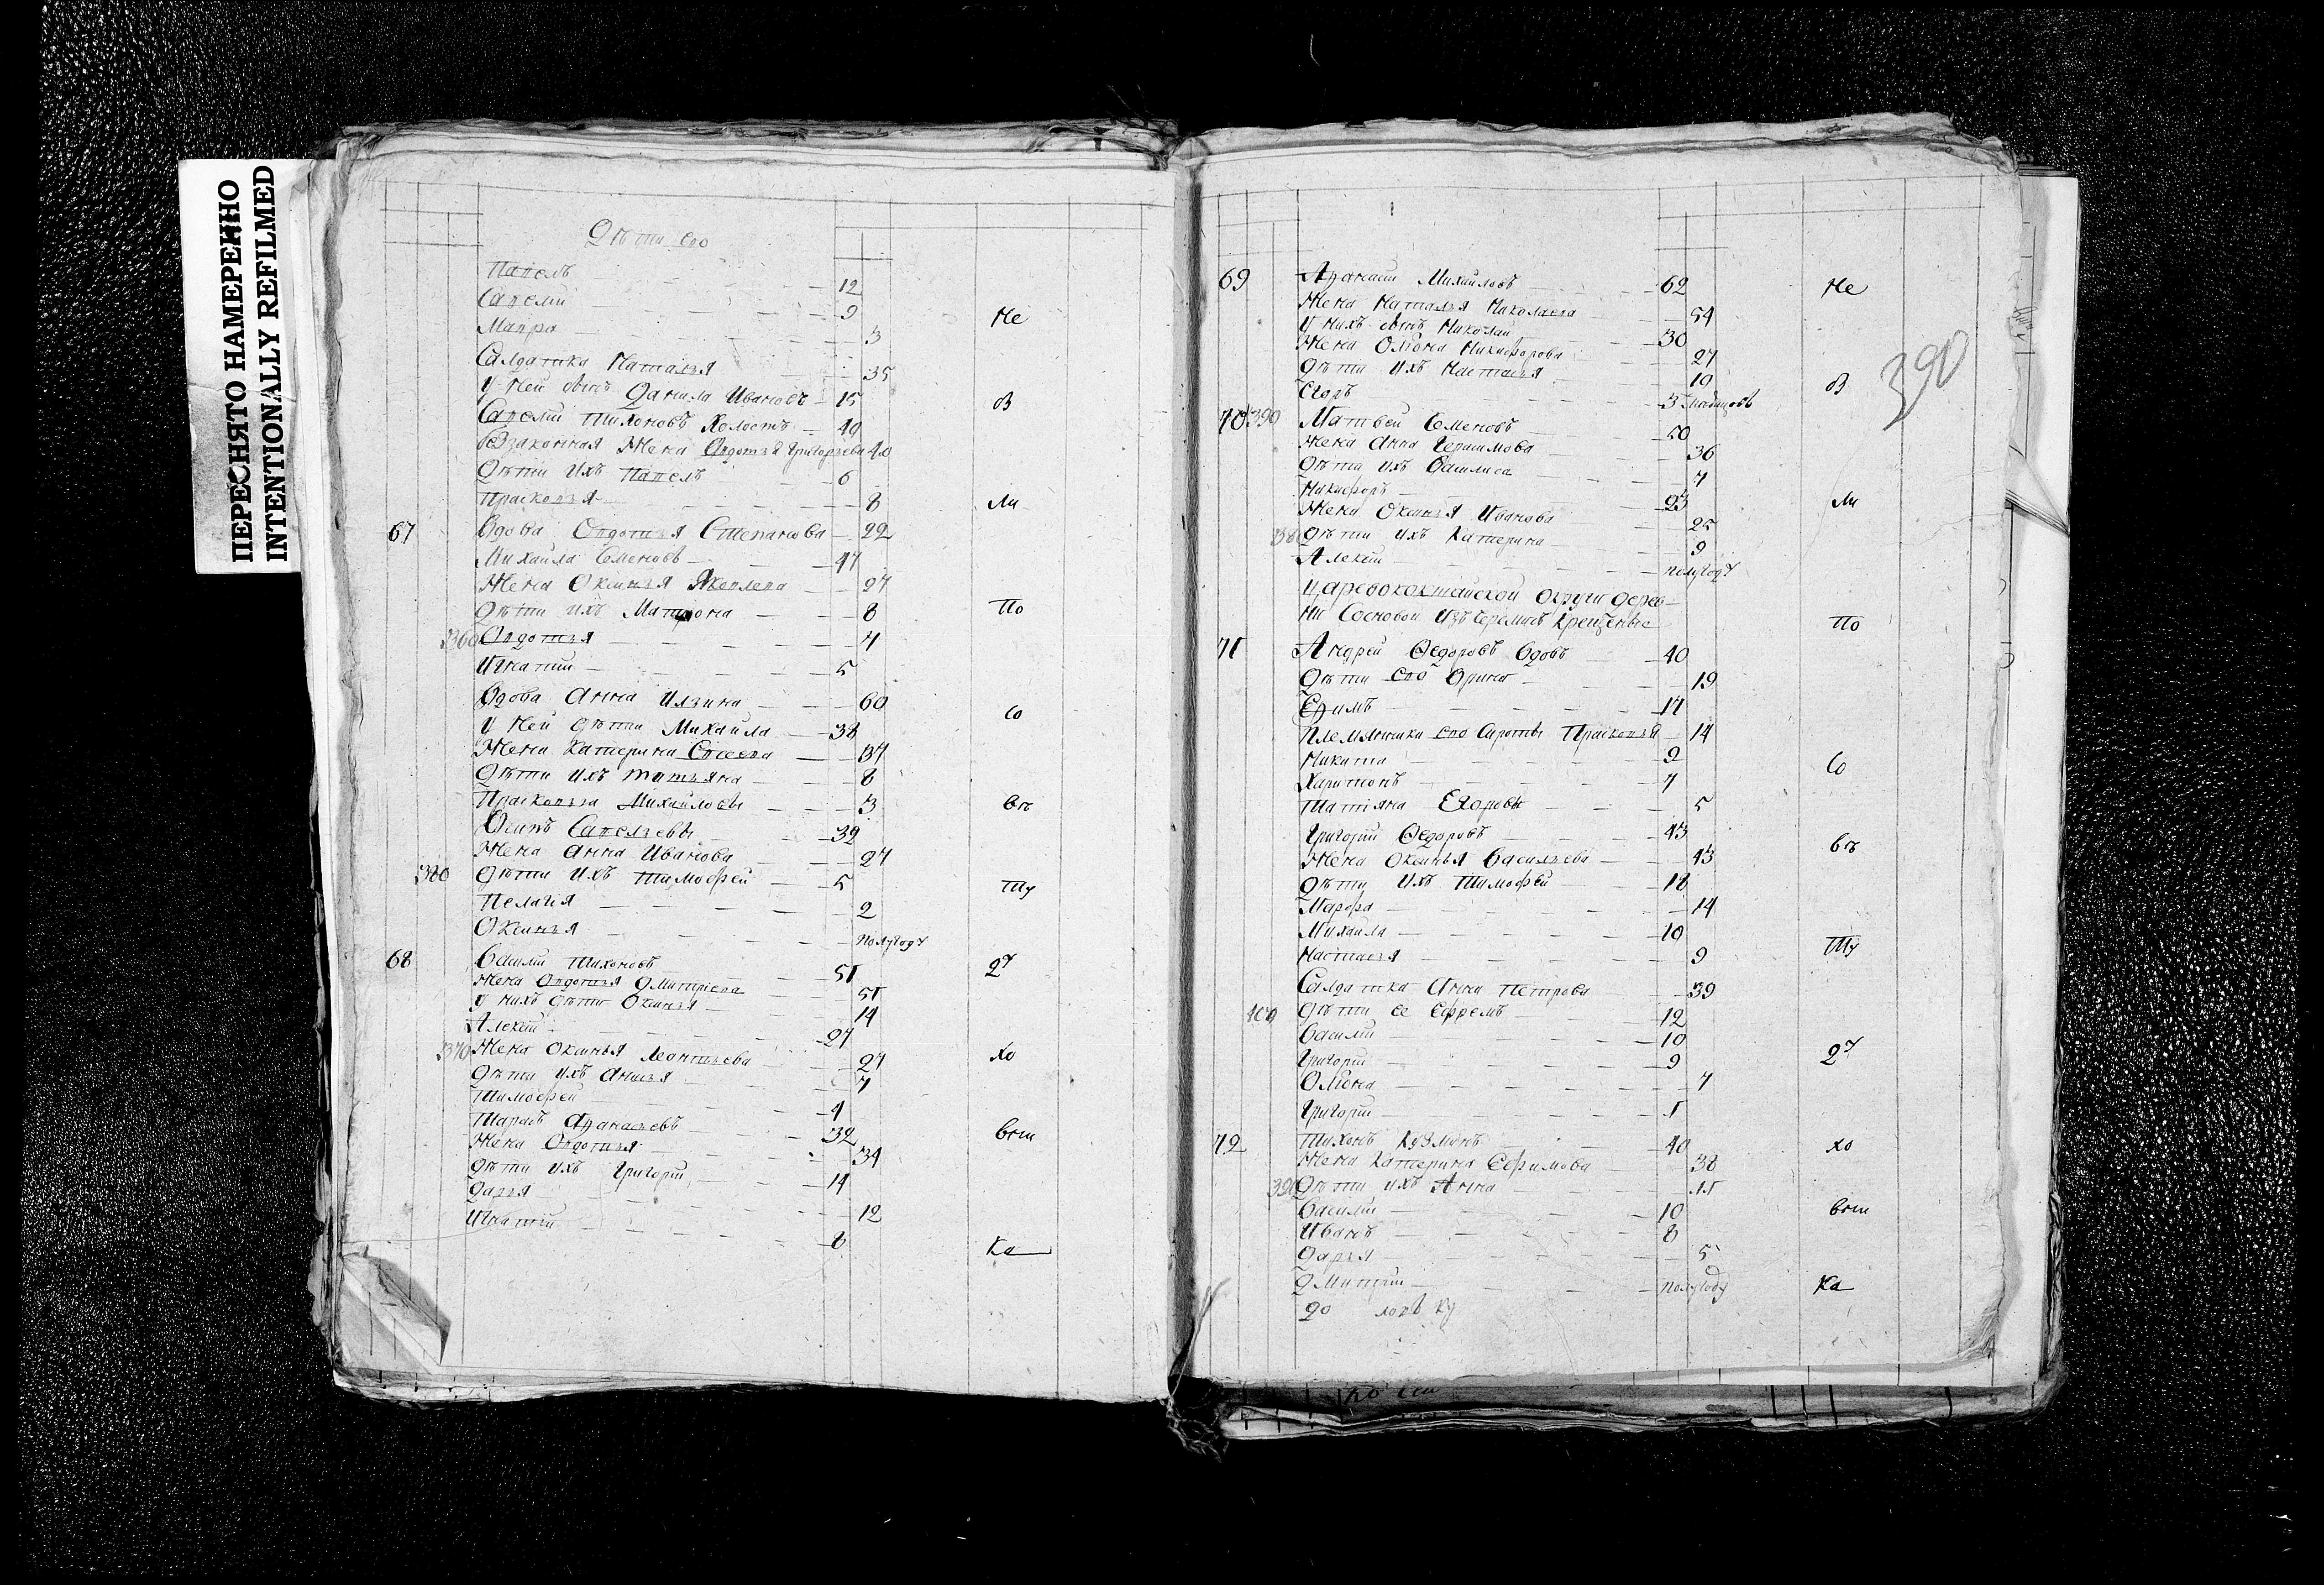 ПЕРЕСНЯТО НАМЕРЕННО
INTENTIONALLY REFILMED
Дѣти его
Павелъ 12
Савелій 9
Мавра 3
Не
Салдатка Наталья 35
У ней сынъ Данила Ивановъ 15
В
Савелій Тихоновъ Холостъ 49
Жена Овдотья Григорьева 40
Дѣти ихъ Павелъ 6
Прасковья 8
Ли
67 Вдова Овдотья Степанова 22
Михайла Семеновъ 47
Жена Оксинья Яковлева 27
Дѣти ихъ Матрона 8
По
360 Овдотья 4
Игнатій 5
Вдова Анна Ильина 60
Со
У ней дѣти Михайла 38
Жена Катерина 37
Дѣти ихъ Татьяна 8
Прасковья Михайловы 3
въ
Осипъ Савельевъ 32
Жена Анна Ивановна 27
380 Дѣти ихъ Тимофей 5
ту
Пелагія 2
Оксинья полугоду
68 Василій Тихоновъ 51
2й
Жена Овдотья Дмитріева 51
У нихъ дѣти Оксинья 14
Алексій 27
370 Жена Оксинья Леонтьева 27
хо
Дѣти ихъ Анисья 7
Тимофей 4
Тарасъ Афанасьевъ 32
вт
Жена Овдотья 34
Дѣти ихъ Григорій 14
Дарья 12
Игнатій 8
Ка
390
69 Афанасій Михайловъ 62
Не
Жена Наталья Николаева 54
У нихъ сынъ Николай 30
Жена Олiона Никифорова 27
Дѣти ихъ Настасья 10
Егоръ 3
В
70 390 Матвей Семеновъ 50
Жена Анна Герасимова 36
Дѣти ихъ Василиса 7
Никифоръ 23
Ли
Жена Оксинья Иванова 25
380 Дѣти ихъ Катерина 9
Алексій полугоду
Царевококшайской округи дерев
ни Сосновой изъ Черемисъ Крещеные
По
71 Андрей Федоровъ Вдовъ 40
Дѣти его Орина 19
Ефимъ 17
Племянники его Сироты Прасковья 14
Никита 9
Со
Харитонъ 7
Татіана Егоровы 5
Григорій Федоровъ 43
въ
Жена Оксинья Васильева 43
Дѣти ихъ Тимофей 18
Марфа 14
Михаила 10
Настасья 9
ту
Салдатка Анна Петрова 39
400 Дѣти ее Ефремъ 12
Василій 10
Григорій 9
2й
Олiона 7
Григорій 1
72 Тихонъ Кузминъ 40
хо
Жена Катерина Ефимова 38
390 Дѣти ихъ Анна 11
Василій 10
вт
Иванъ 8
Дарья 5
Дмитрій полугоду
Ка